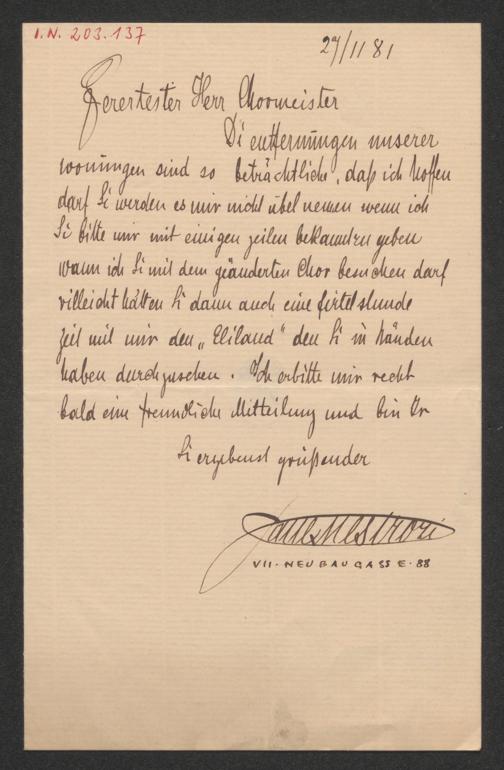 I.N. 203.137
27/11 81
Ferertester Herr Chormeister
Di entfernungen unserer
wonungen sind so beträchtliche, daß ich hoffen
darf Si werden es mir nicht übel nemen wenn ich
Si bitte mir mit einigen zeilen bekannt zu geben
wann ich Si mit dem geänderten Chor besuchen darf
villeicht hätten Si dann auch eine firtelstunde
Zeit mit mir den „Eliland“ den Si in händen
haben durchzusehen. Ich erbitte mir recht
bald eine freundliche Mitteilung und bin Ir
Si ergebenst grüßender
VII. NEUBAUGASSE. 88